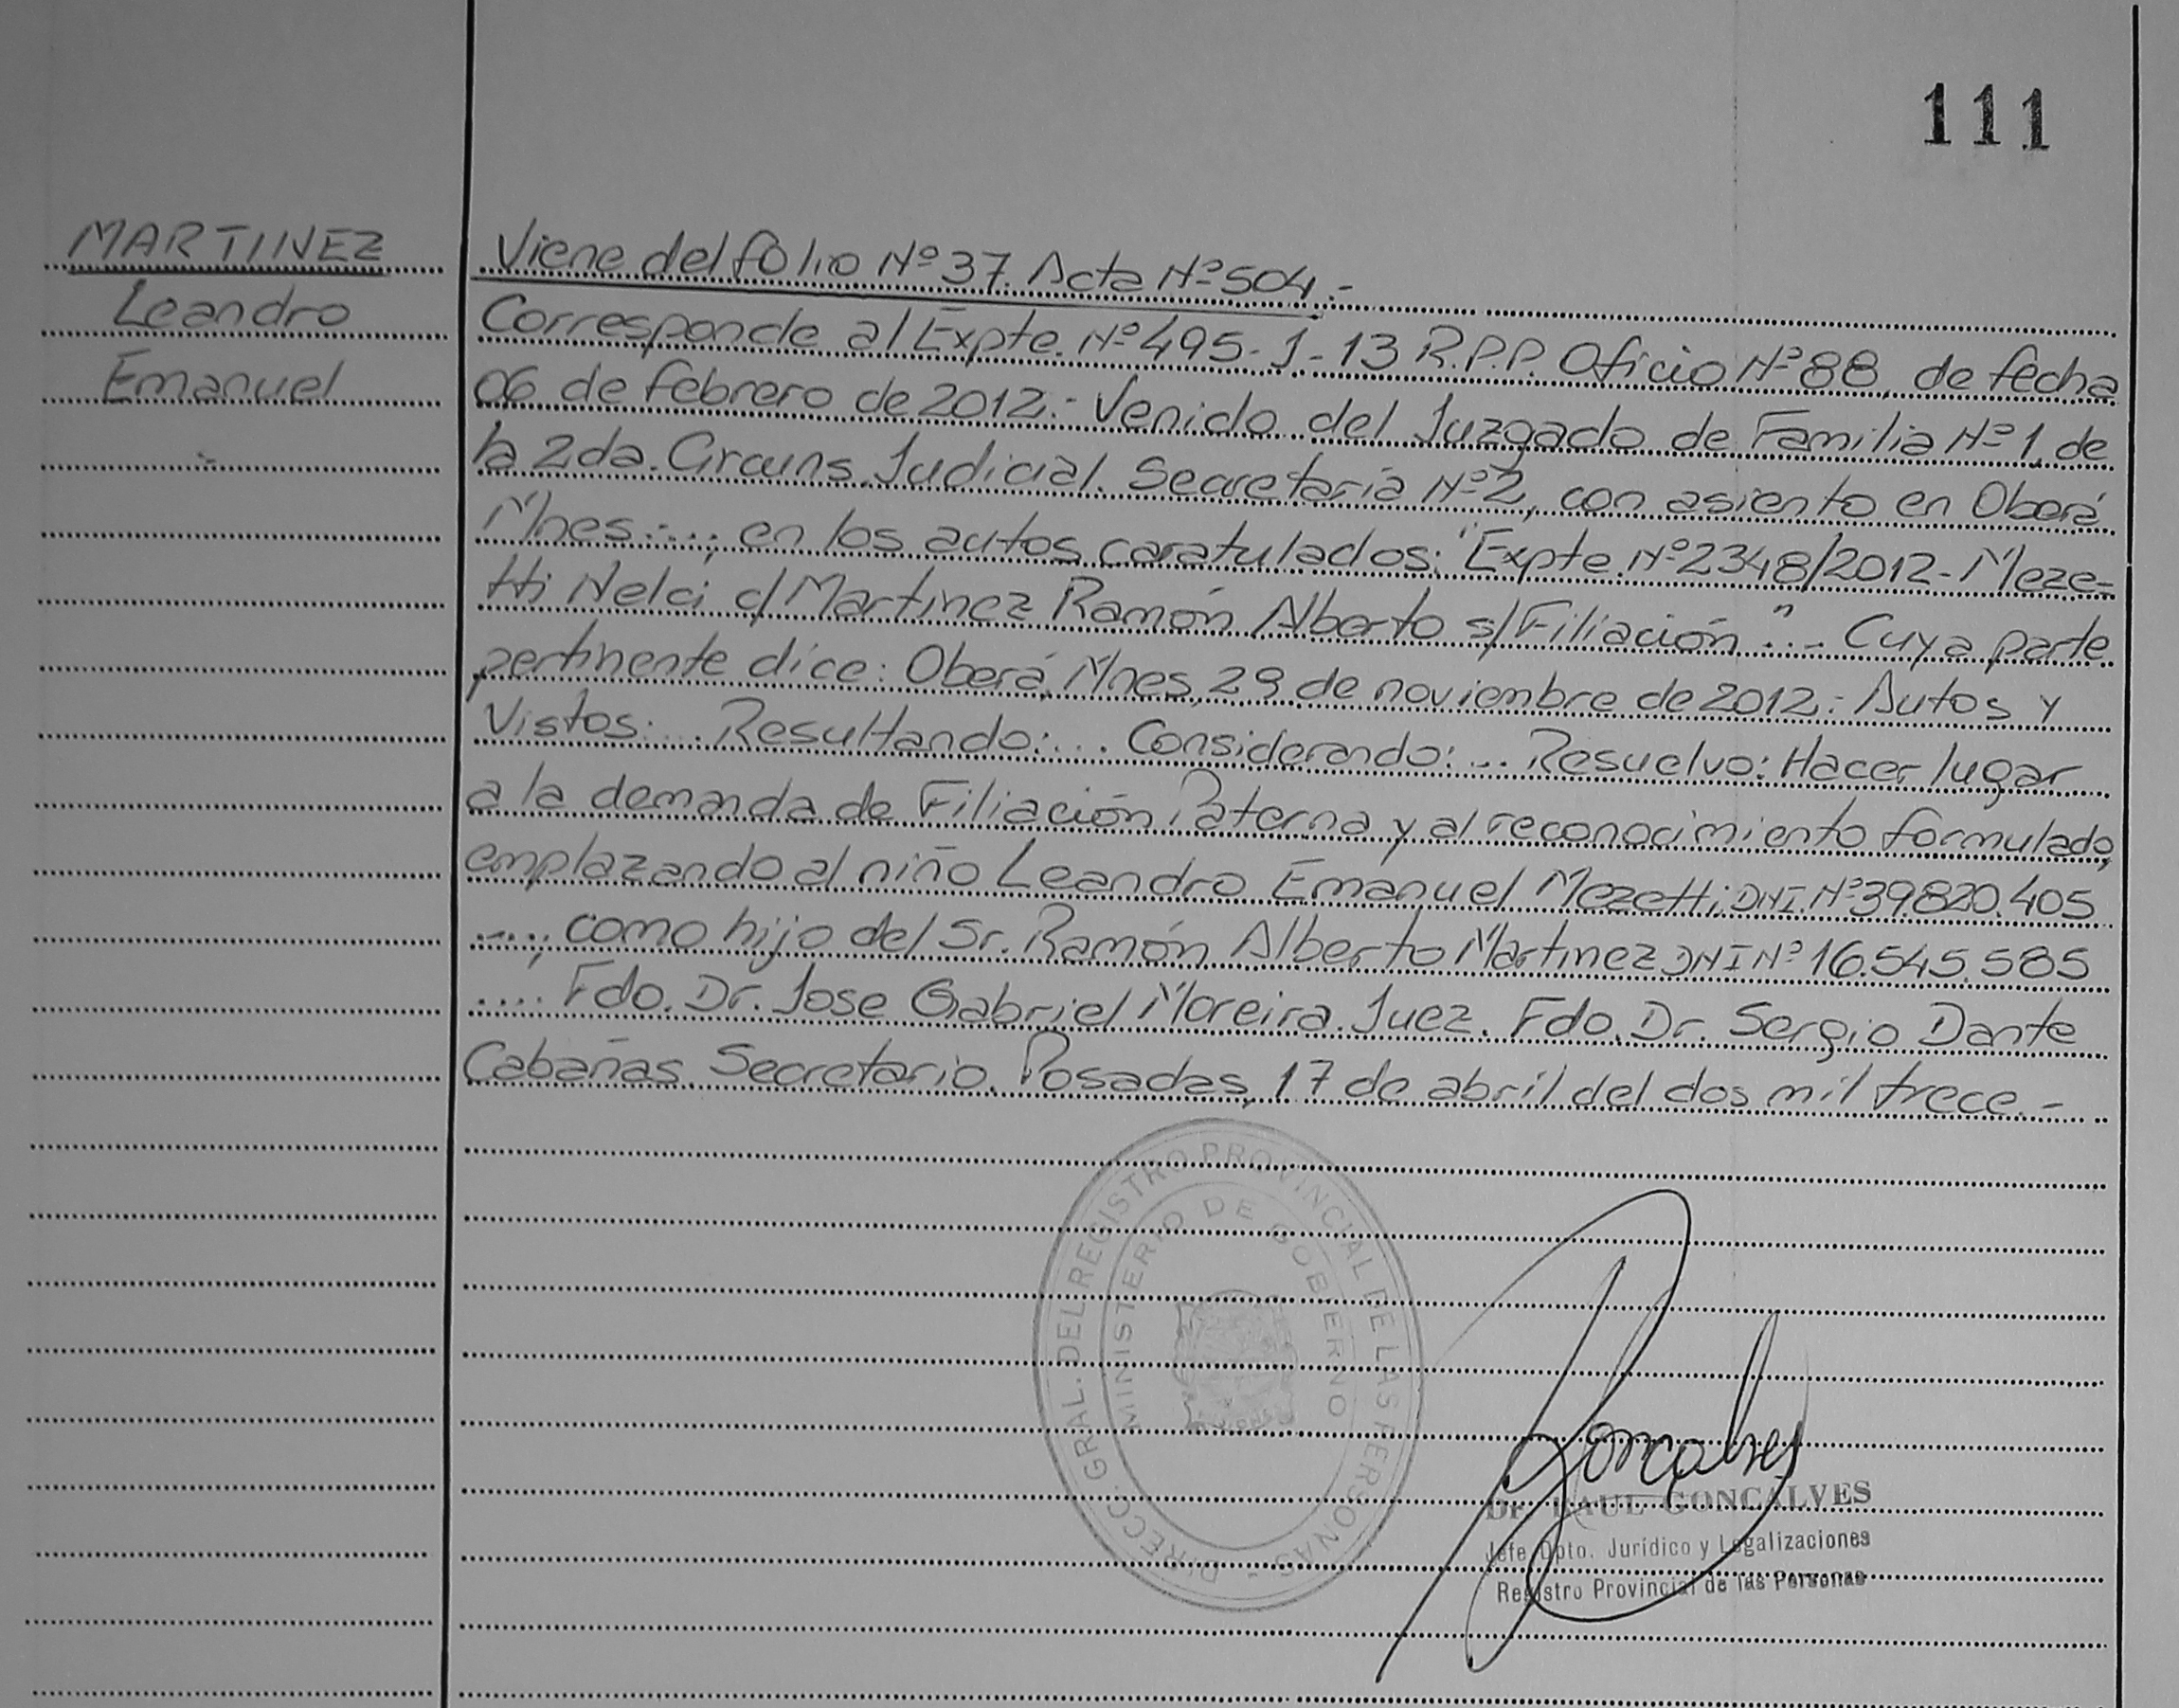 111
MARTINEZ
Leandro
Emanuel
Viene del folio Nº 37. Acta Nº 504.-
Corresponde al Expte. Nº 495-J-13 R.P.P. Oficio Nº 88, de fecha
06 de febrero de 2012.- Venido del Juzgado de Familia Nº 1, de
la 2da. Circuns. Judicial. Secretaría Nº 2, con asiento en Oberá
Mnes:...; en los autos caratulados: "Expte. Nº 2348/2012- Meze=
tti Nelci c/ Martinez Ramón Alberto s/ Filiación"... Cuya parte
pertinente dice: Oberá, Mnes, 29 de noviembre de 2012.- Autos y
Vistos:... Resultando:... Considerando:... Resuelvo: Hacer lugar
a la demanda de Filiación Paterna y al reconocimiento formulado,
emplazando al niño Leandro Emanuel Mezetti; DNI. Nº 39.820.405
....; como hijo del Sr. Ramón Alberto Martinez DNI Nº 16.545.585
.... Fdo. Dr. Jose Gabriel Moreira. Juez. Fdo. Dr. Sergio Dante
Cabañas. Secretario. Posadas, 17 de abril del dos mil trece.-
DIRECC. GRAL. DEL REGISTRO PROVINCIAL DE LAS PERSONAS -
MINISTERIO DE GOBIERNO
Goncalves
Dr. RAUL GONCALVES
Jefe Dpto. Jurídico y Legalizaciones
Registro Provincial de las Personas